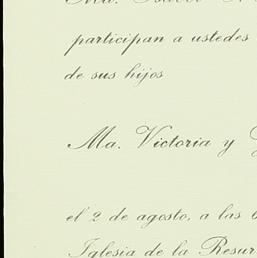 participan a ustedes
de sus hijos
Ma. Victoria y
el 2 de agosto, a las
Iglesia de la Resur